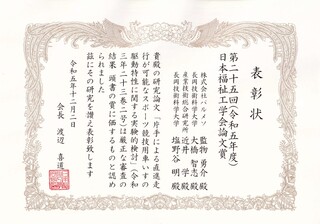 表彰状
第二十五回(令和五年度)
日本福祉工学会論文賞
株式会社バルメソ 監物 勇介 殿
長岡技術科学大学 大橋 智志 殿
産業技術総合研究所 近井 学 殿
長岡技術科学大学 塩野谷 明 殿
貴殿の研究論文「片手による直進走
行が可能なスポーツ競技用車いすの
駆動特性に関する実験的検討」(令和
三年二十三巻二号)は厳正な審査の
結果、頭書の賞に価するものと認め
られました
茲にその研究を讃え表彰致します
令和五年十二月二日
会長 渡辺 喜道